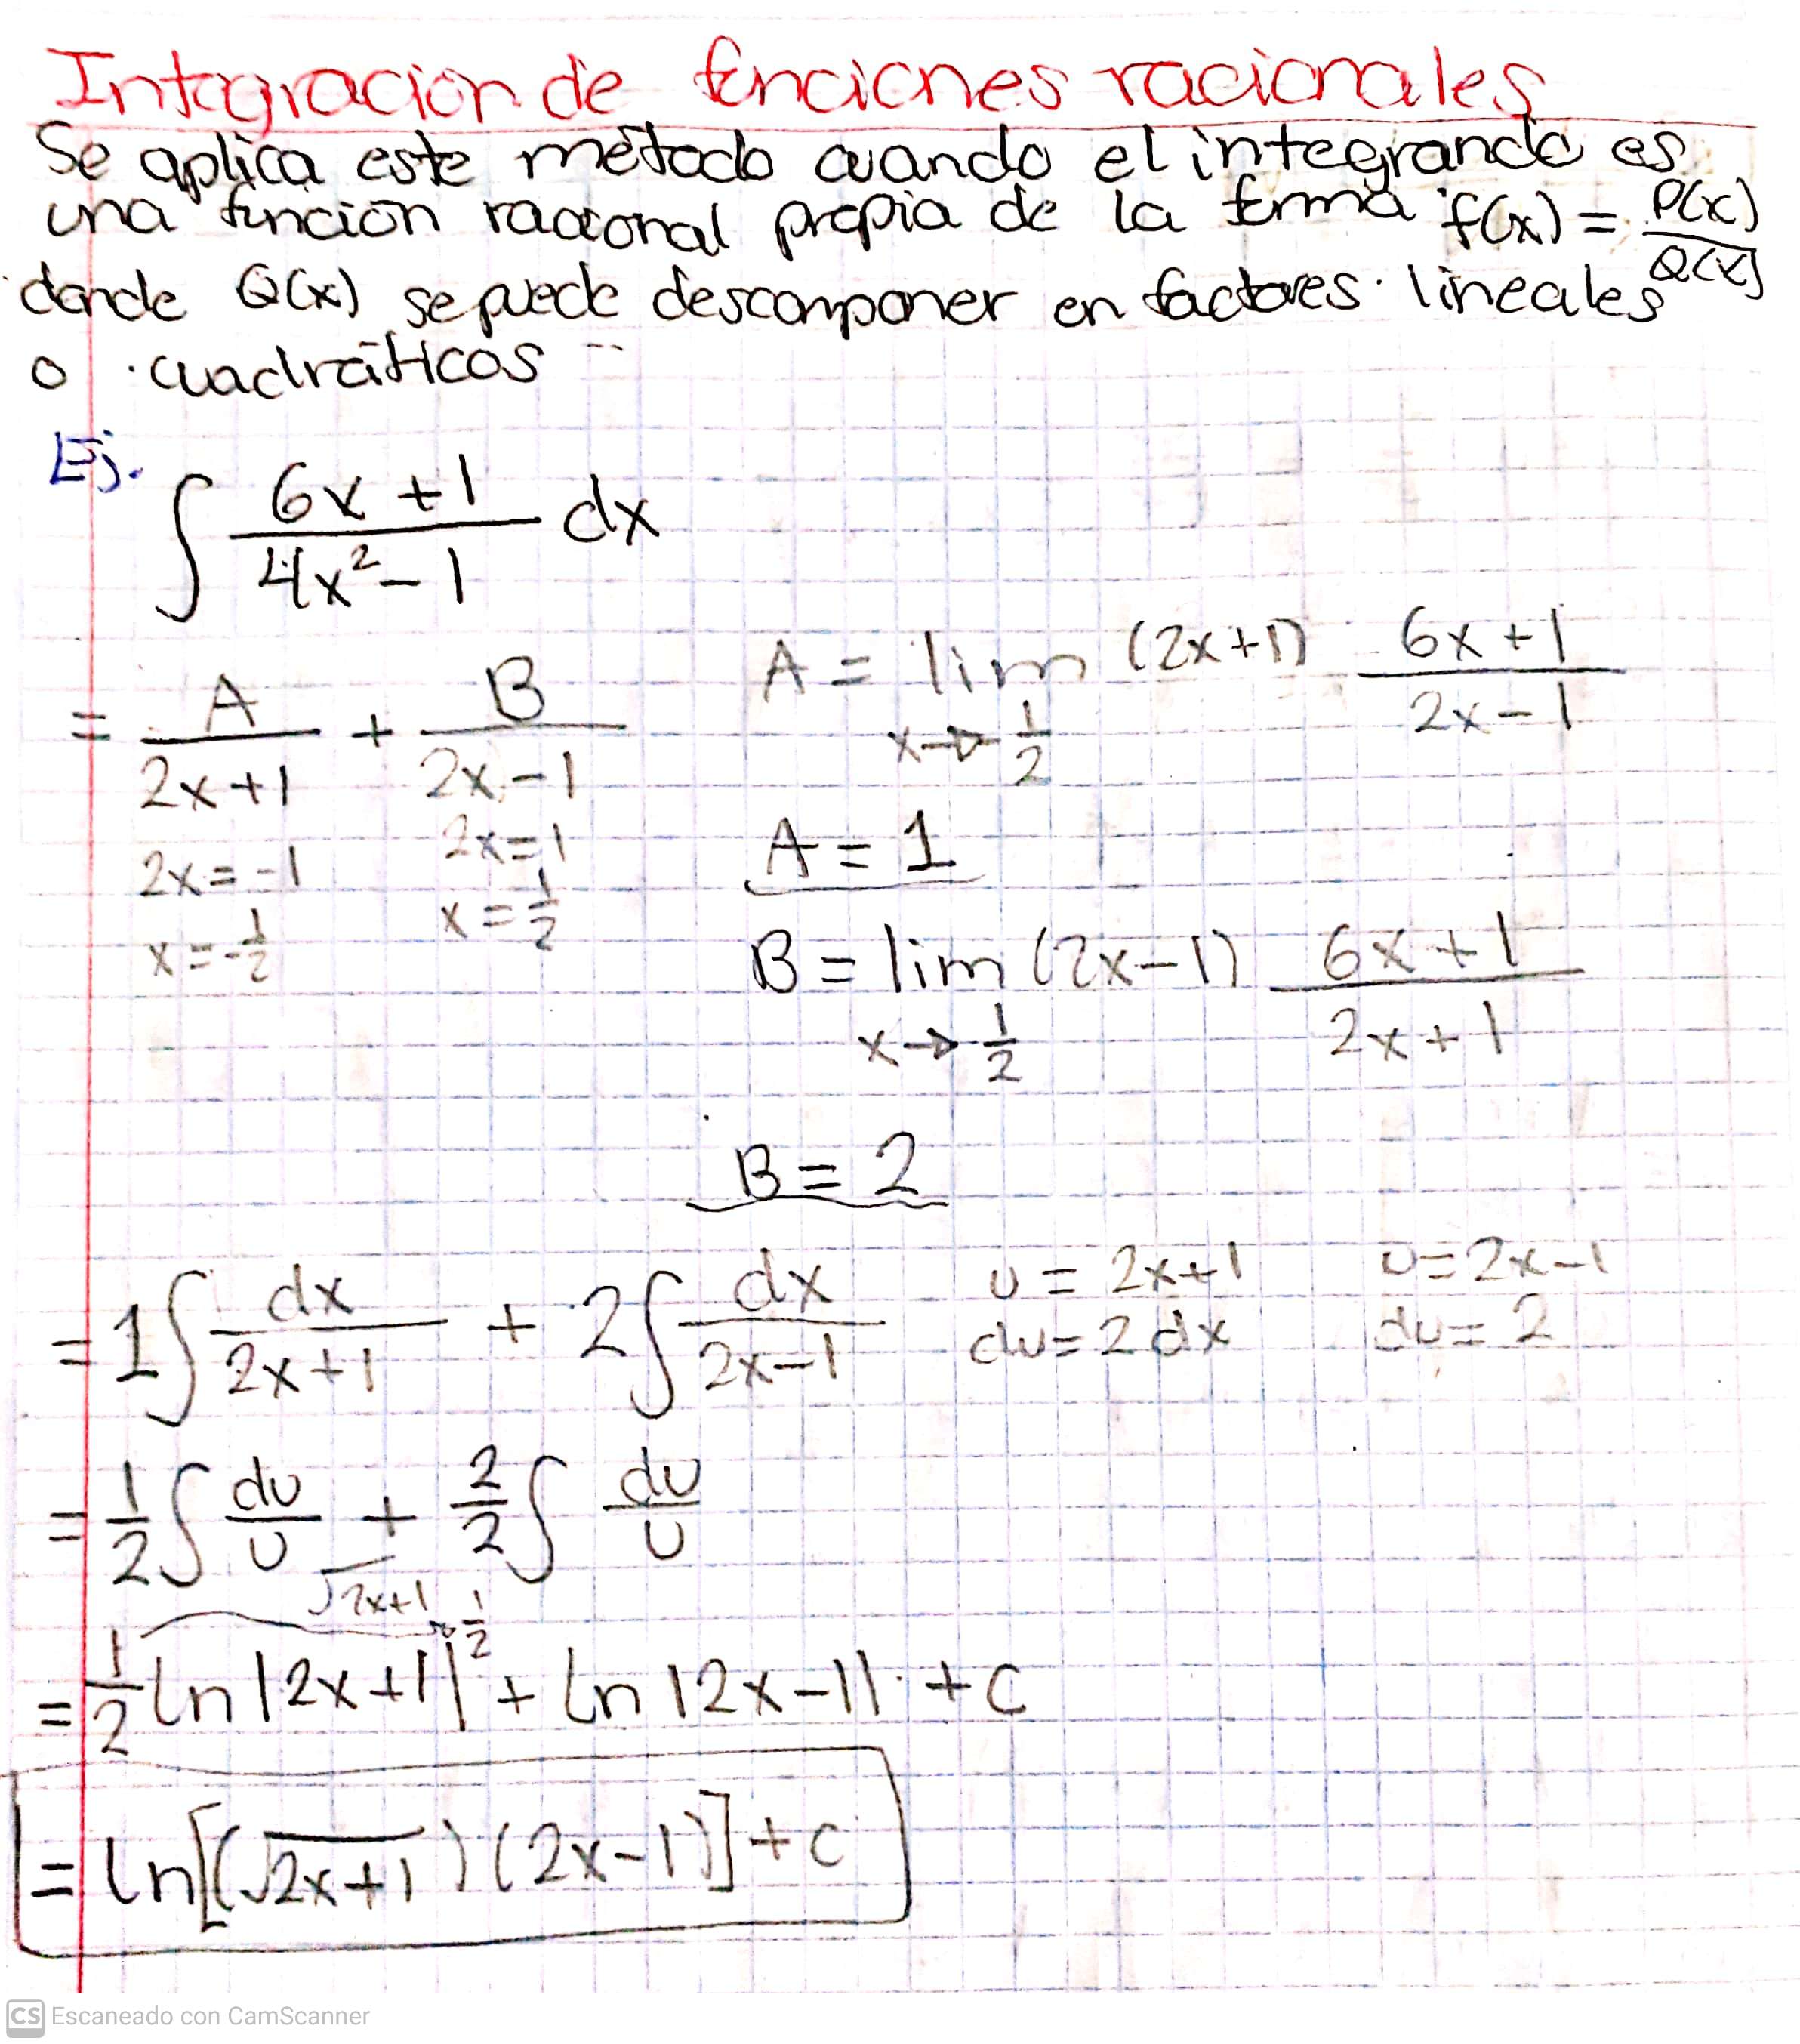 Integración de funciones racionales
Se aplica este método cuando el integrando es
una función racional propia de la forma f(x) = P(x)/Q(x)
donde Q(x) se puede descomponer en factores lineales
o cuadráticos
Ej.
∫ (6x + 1)/(4x² - 1) dx
= A/(2x+1) + B/(2x-1)
2x = -1
x = -1/2
2x = 1
x = 1/2
A = lim x→1/2 (2x+1) (6x+1)/(2x-1)
A = 1
B = lim x→1/2 (2x-1) (6x+1)/(2x+1)
B = 2
= 1∫ dx/(2x+1) + 2∫ dx/(2x-1)
u = 2x+1
du = 2dx
u = 2x-1
du = 2
= 1/2 ∫ du/u + 2/2 ∫ du/u
√2x+1
= 1/2 ln |2x+1|^1/2 + ln |2x-1| + c
= ln[(√2x+1)(2x-1)] + c
CS Escaneado con CamScanner